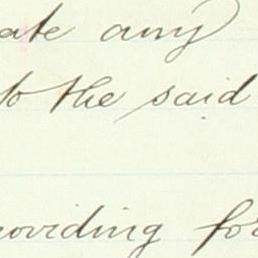 ate any
to the said
roviding for